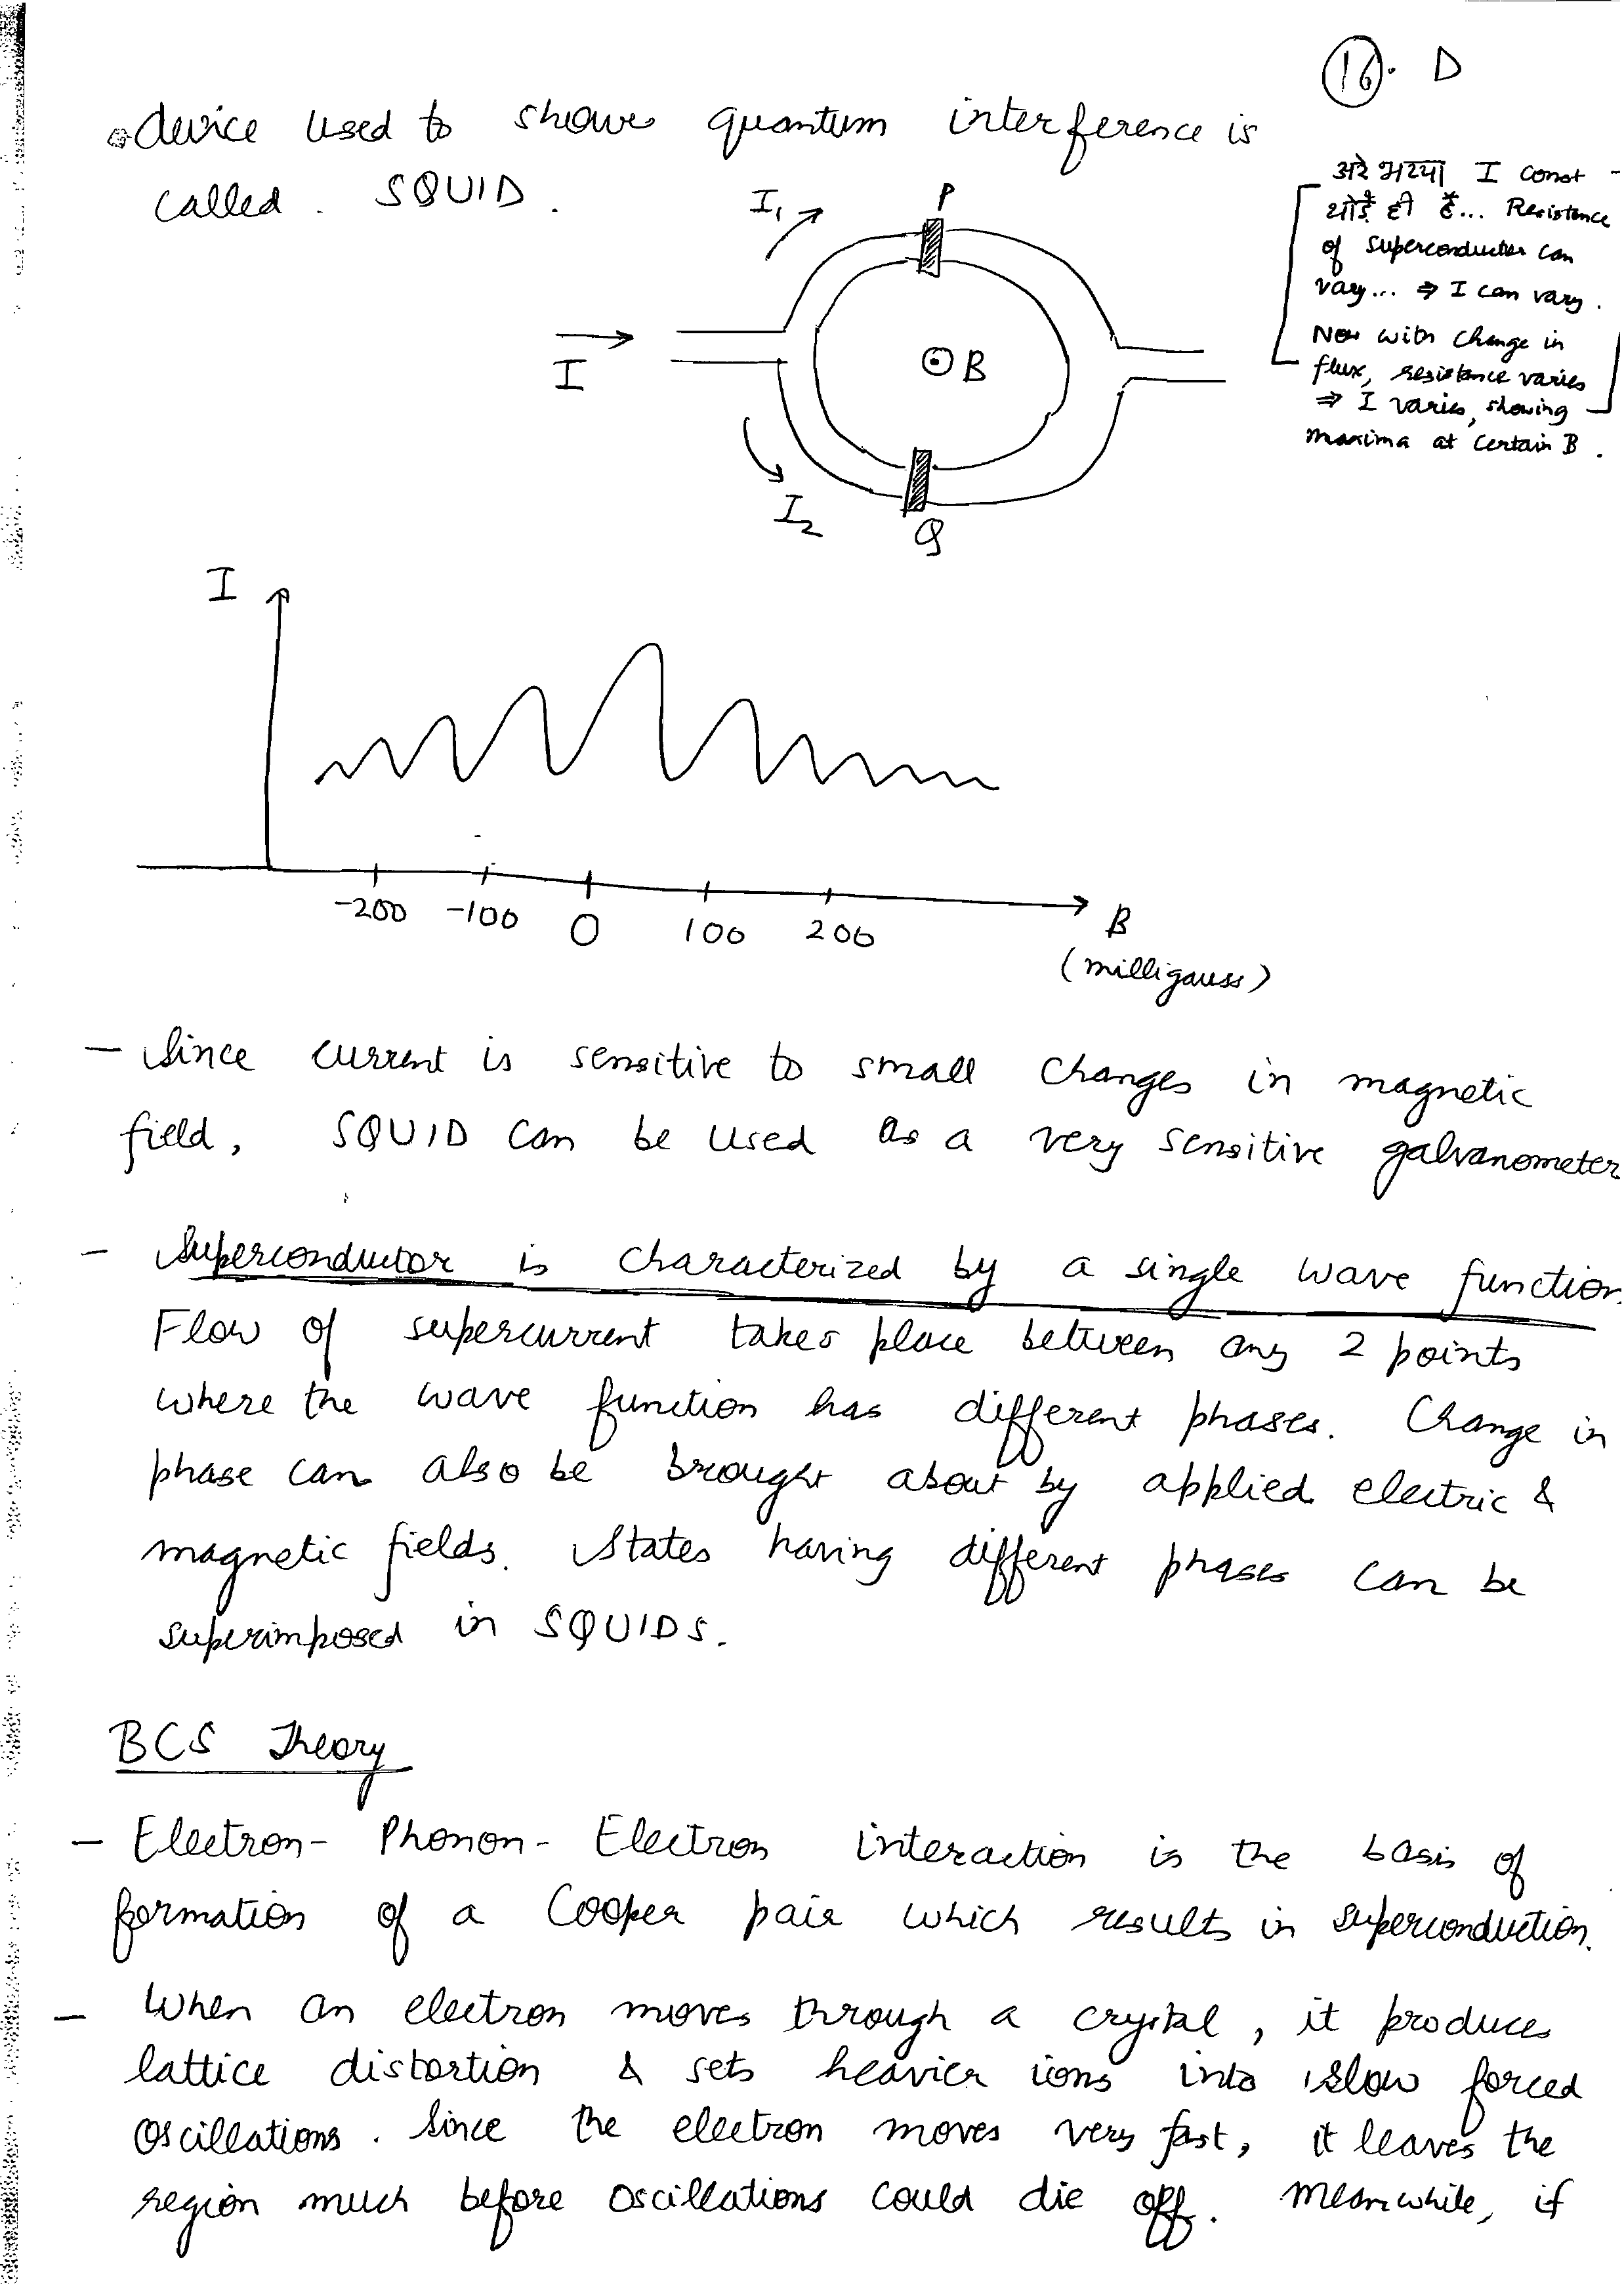 16. D
device used to show quantum interference is
called. SQUID.
अरे भय्या I const
थोड़े ही है... Resistance
of superconductor can
vary... ⇒ I can vary.
Now with change in
flux, resistance varies
⇒ I varies, showing
maxima at certain B.
I₁
P
I
B
I₂
Q
I
-200 -100 0 100 200
B
(milligauss)
- Since current is sensitive to small changes in magnetic
field, SQUID can be used as a very sensitive galvanometer
- Superconductor is characterized by a single wave function.
Flow of supercurrent takes place between any 2 points
where the wave function has different phases. Change in
phase can also be brought about by applied electric &
magnetic fields. States having different phases can be
superimposed in SQUIDS.
BCS Theory
- Electron-Phonon-Electron interaction is the basis of
formation of a Cooper pair which results in superconduction.
- When an electron moves through a crystal, it produces
lattice distortion & sets heavier ions into slow forced
oscillations. Since the electron moves very fast, it leaves the
region much before oscillations could die off. Meanwhile, if